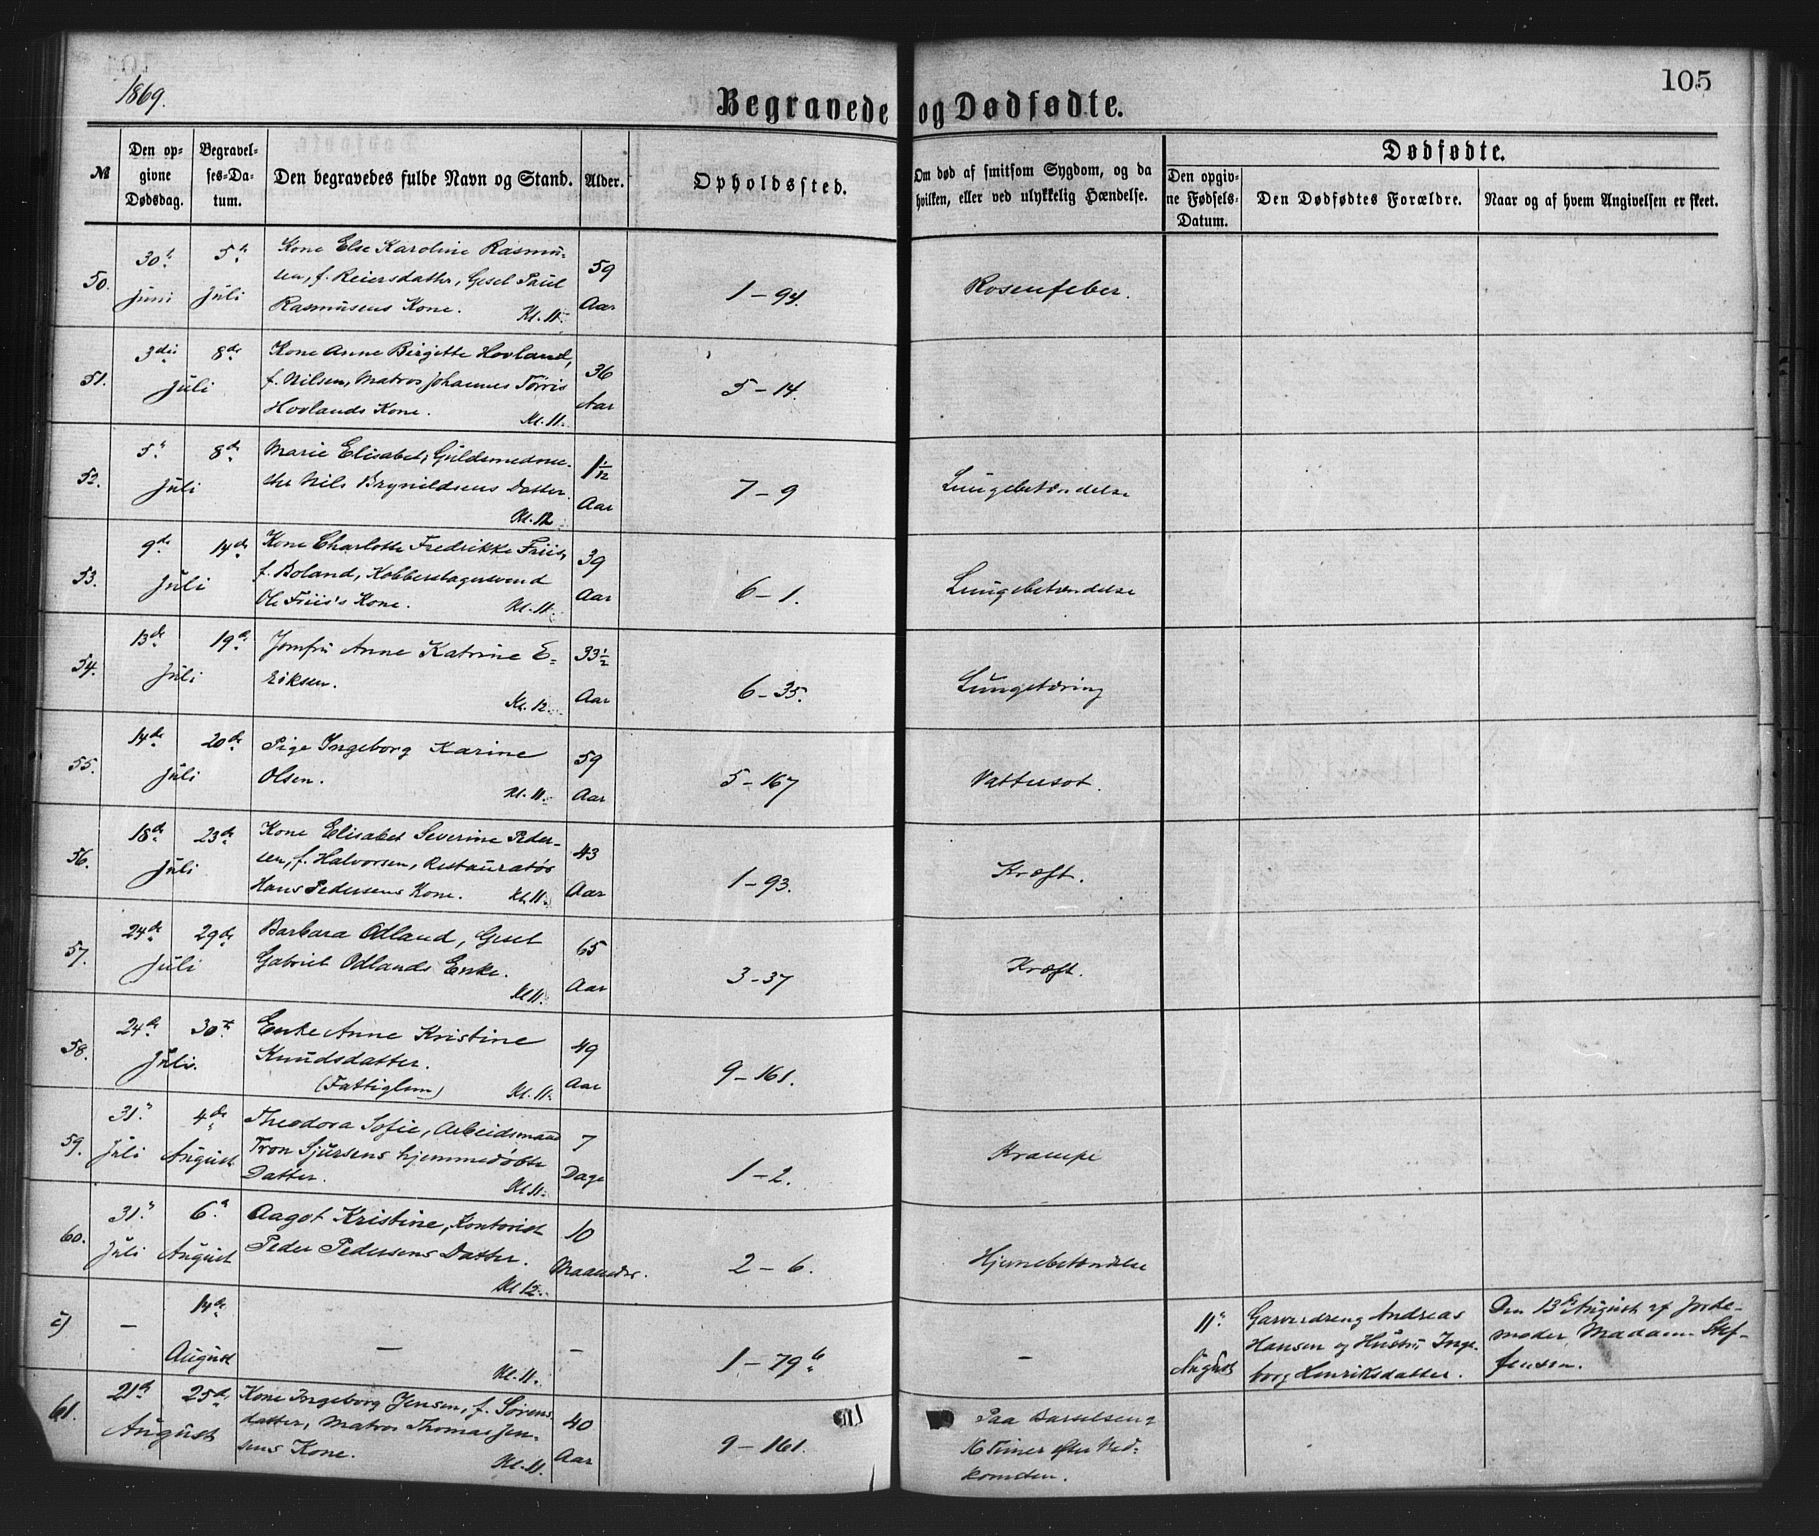 1869.
105
Begravede og Dødfødte.
№
Den opgivne Dødsdag.
Begravelses-Datum.
Den begravedes fulde Navn og Stand.
Alder.
Opholdssted.
Om død af smitsom Sygdom, og da hvilken, eller ved ulykkelig Hændelse.
Dødfødte.
Den opgivne Fødsels-Datum.
Den Dødfødtes Forældre.
Naar og af hvem Angivelsen er skeet.
50. 30 Juni 5 Juli
Kone Else Karoline Rasmu-
sen, f. Reiersdatter, Gesel Paul
Rasmusens Kone. Kl. 11.
59 Aar
1 – 94.
Rosenfeber.
51. 3die 8de Juli
Kone Anne Birgitte Hovland,
f. Nilsen, Matros Johannes Tørris
Hovlands Kone. Kl. 11.
36 Aar
5 – 14.
52. 5 8de Juli
Marie Elisabet, Guldsmedme-
ster Nils Brynildsens Datter.
Kl. 12
1 1/12 Aar
7 – 9
Lungebetændelse
53. 9de 14de Juli
Kone Charlotte Fredrikke Friis,
f. Boland, Kobberslagersvend
Ole Friis's Kone. Kl. 11.
39 Aar
6 – 1.
Lungebetændelse
54. 13de 19de Juli
Jomfru Anne Katrine E-
riksen.
Kl. 12.
33 1/2 Aar
6 – 35.
Lungetæring
55. 14de 20de Juli
Pige Ingeborg Karine
Olsen.
Kl. 11.
59 Aar
5 – 167
Vattersot.
56. 18de 23de Juli
Kone Elisabet Severine Peder-
sen, f. Halvorsen, Restauratør
Hans Pedersens Kone. Kl. 11.
43 Aar
1 – 93.
Kræft.
57. 24de 29de Juli
Barbara Odland, Gesel
Gabriel Odlands Enke.
Kl. 11.
65 Aar
3 – 37
Kræft.
58. 24de 30te Juli.
Enke Anne Kristine
Knudsdatter.
(Fattiglem) Kl. 11.
49 Aar
9 – 161.
59. 31. Juli 4de August
Theodora Sofie, Arbeidsmand
Tron Sjursens hjemmedøbte
Datter. Kl. 11.
7 Dage
1 – 2.
Krampe
60. 31. Juli 6. August
Aagot Kristine, Kontorist
Peder Pedersens Datter.
Kl. 12.
10 Maaneder.
2 – 6.
Hjernebetændelse
– 14de August
–
Kl. 11.
–
1 – 79 b
–
11 August
Garverdreng Andreas
Hansen og Hustru Inge-
borg Henriksdatter.
Den 13de August af Jorde-
moder Madam Stef-
fensen.
61. 21de 25de August
Kone Ingeborg Jensen, f. Sørens-
datter, Matros Thomas Jen-
sens Kone. Kl. 11.
40 Aar
9 – 161.
Paa Barselseng
16 Timer efter Ned-
komsten.